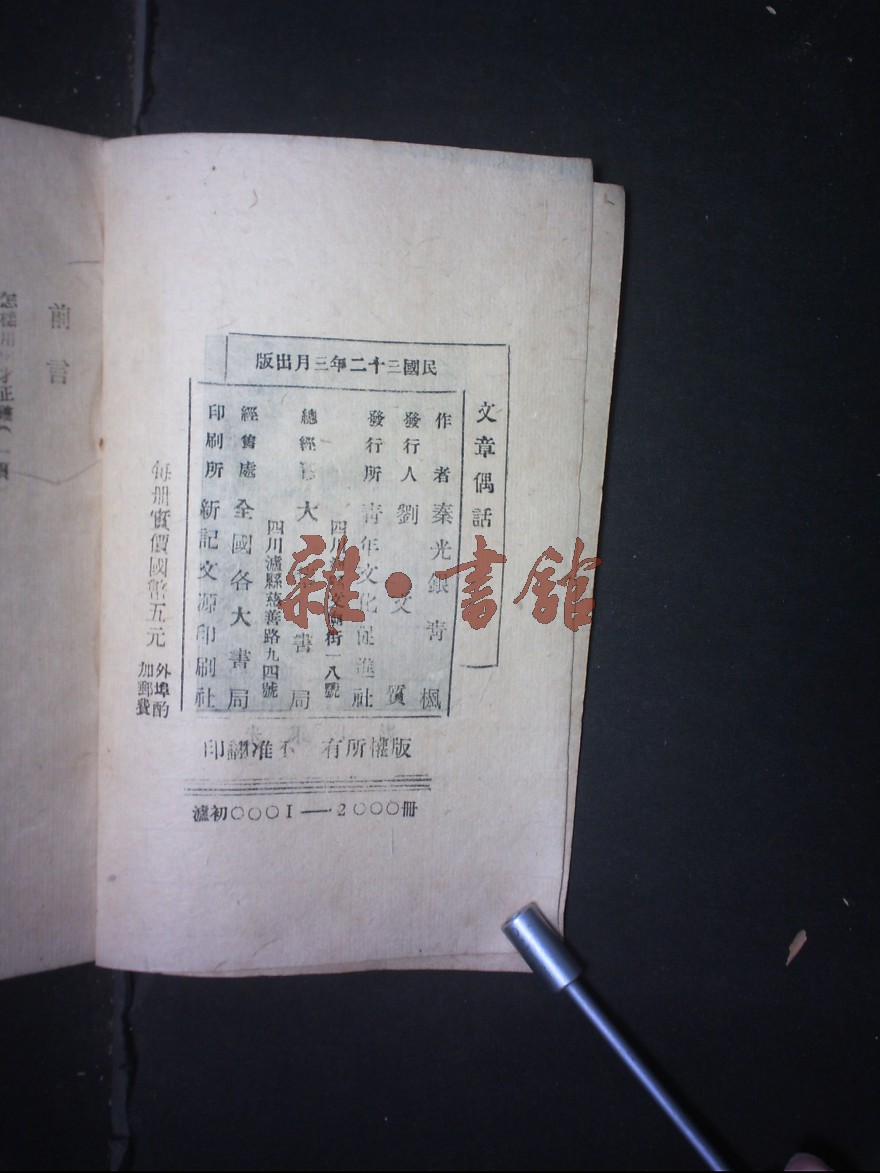 文章偶話
民國三十二年三月出版
作者 秦光銀 靑楓
發行人 劉文質
發行所 靑年文化促進社
四川 街一八號
總經 大 書局
四川瀘縣慈善路九四號
經售處 全國各大書局
印刷所 新記文源印刷社
每册實價國幣五元
外埠酌加郵費
版權所有 不准翻印
瀘初〇〇〇1——2〇〇〇冊
前言
雜·書館